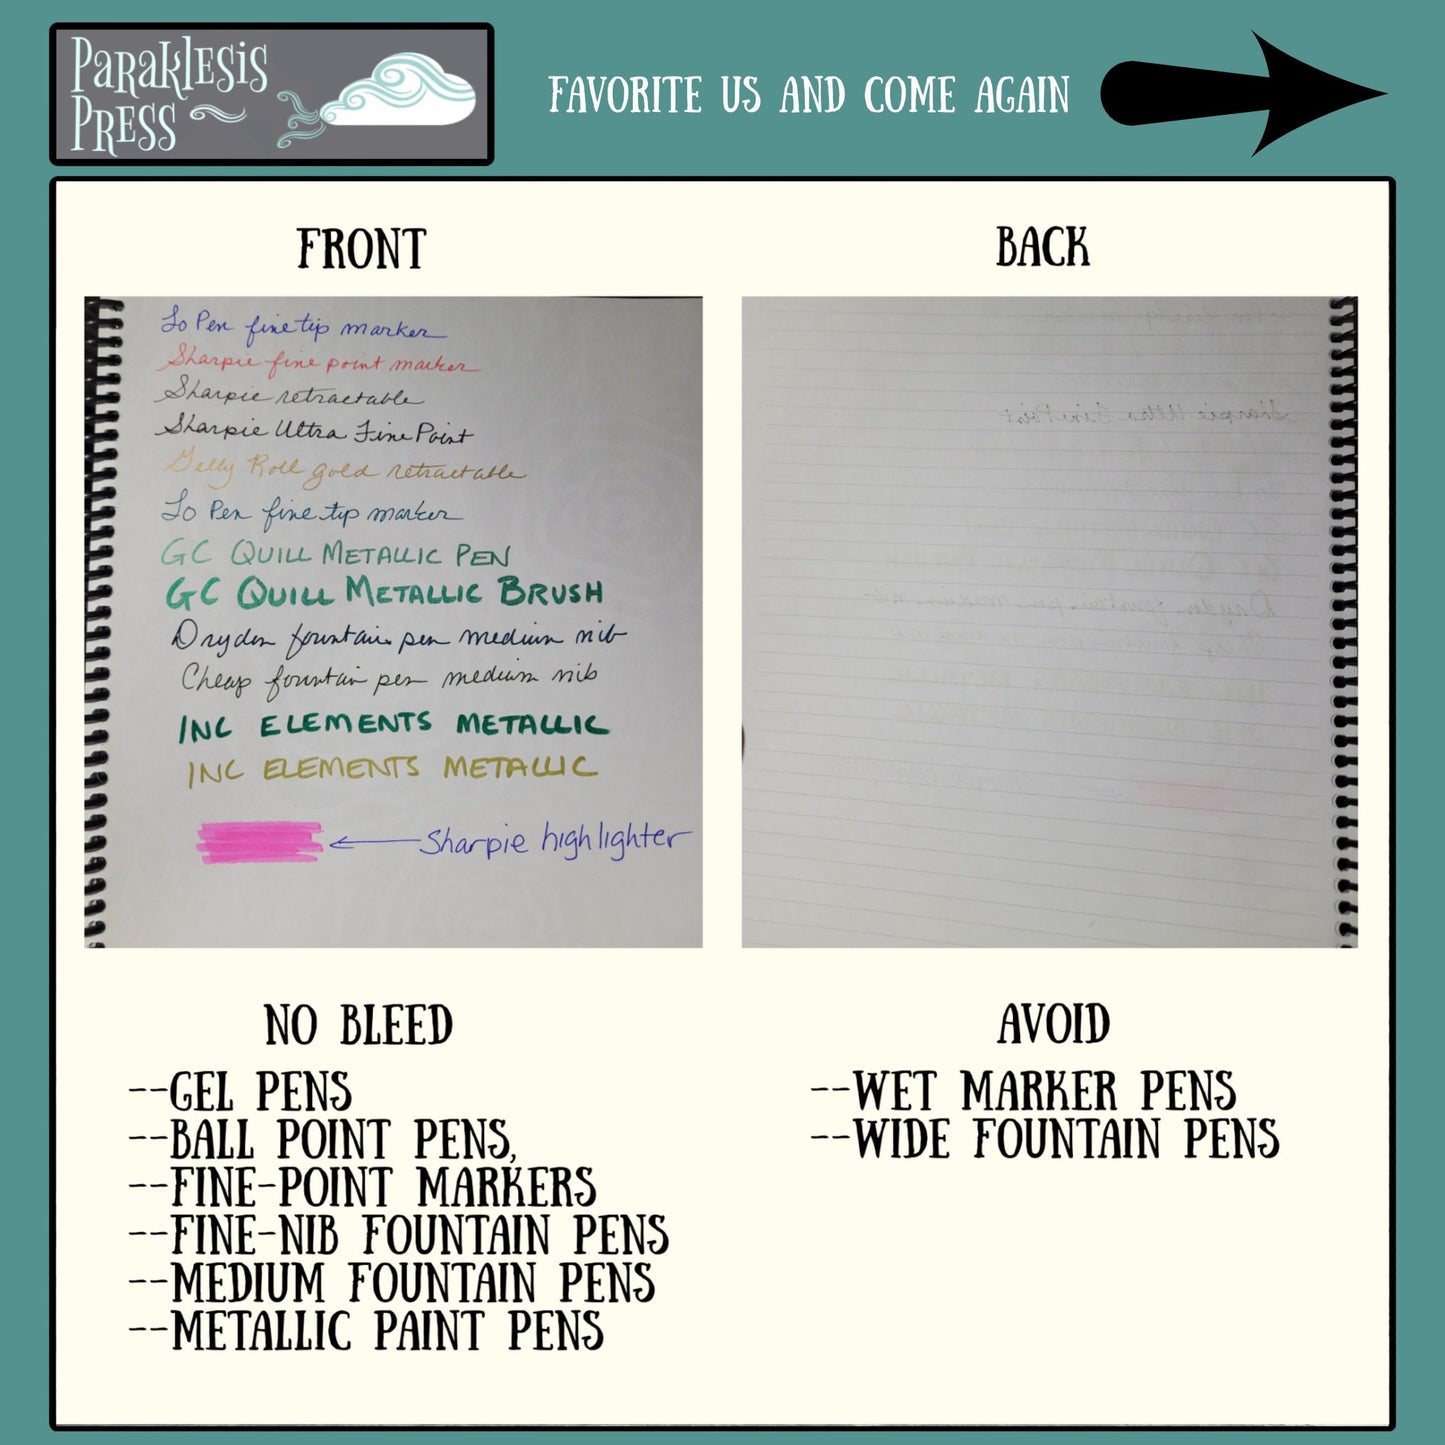 PARAKLESIS
PRESS
FAVORITE US AND COME AGAIN
FRONT
Le Pen fine tip marker
Sharpie fine point marker
Sharpie retractable
Sharpie Ultra Fine Point
Gelly Roll gold retractable
Le Pen fine tip marker
GC QUILL METALLIC PEN
GC QUILL METALLIC BRUSH
Dryden fountain pen medium nib
Cheap fountain pen medium nib
INC ELEMENTS METALLIC
INC ELEMENTS METALLIC
Sharpie highlighter
BACK
Sharpie Ultra Fine Point
NO BLEED
--GEL PENS
--BALL POINT PENS,
--FINE-POINT MARKERS
--FINE-NIB FOUNTAIN PENS
--MEDIUM FOUNTAIN PENS
--METALLIC PAINT PENS
AVOID
--WET MARKER PENS
--WIDE FOUNTAIN PENS